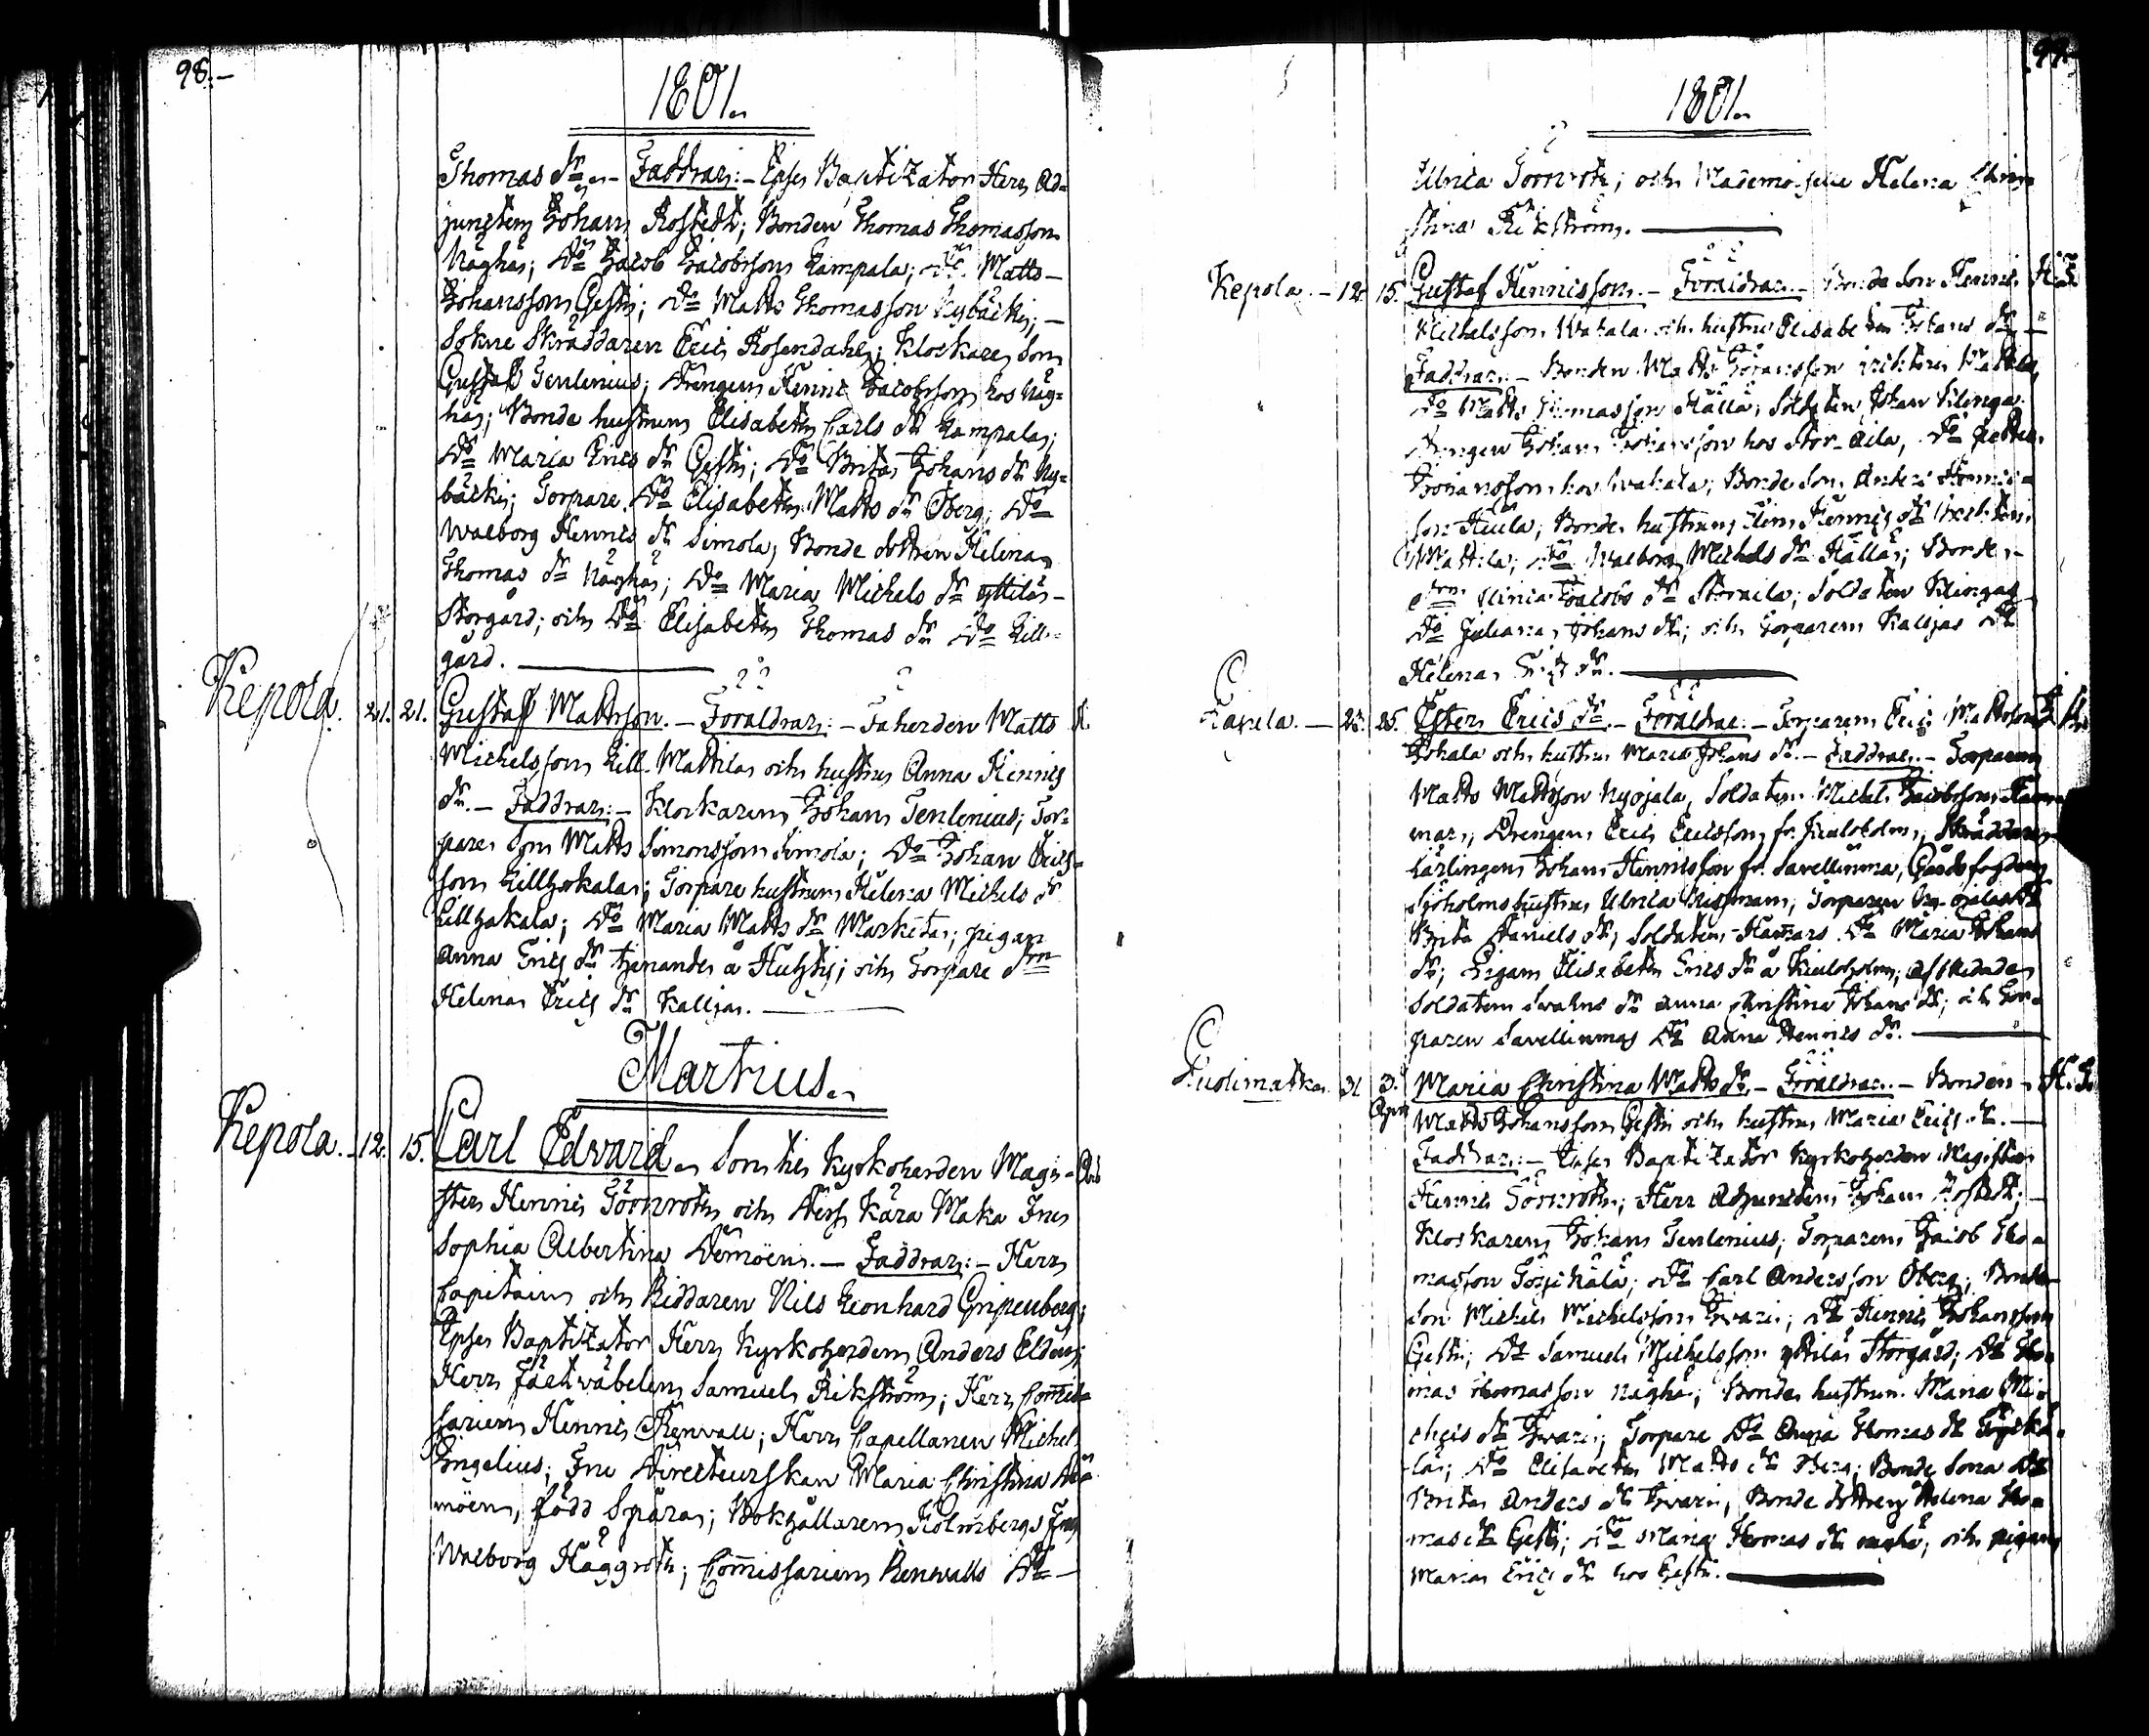 98.
1801.
Thomas dr. — Faddrar: — Ipse Baptizator Herr Ad-
juncten Johan Rostedt; Bonden Thomas Thomasson
Näghä; Do Jacob Jacobsson Lampala; Do Matts
Johansson Gesti; Do Matts Thomasson Nybäcki; —
Sokne Skräddaren Eric Rosendahl; Klockare Son
Gustaf Tenlenius; Drengen Hennic Jacobsson hos Näg-
hä; Bonde hustrun Elisabeth Carls dr Lampala;
Do Maria Erics dr Gesti; Do Brita Johans dr Ny-
bäcki; Torpare Do Elisabeth Matts dr Öberg; Do
Walborg Hennics dr Simola; Bonde dottren Helena
Thomas dr Näghä; Do Maria Michels dr Yttilä
Storgård; och Do Elisabeth Thomas dr Do Lill-
gård.
Kepola. 21. 21. Gustaf Mattsson. — Föräldrar: — Faherden Matts
Michelsson Lill-Mattila och hustru Anna Hennics
dr. — Faddrar: — Klockaren Johan Tenlenius; Tor-
pare Son Matts Simonsson Simola; Do Johan Erics-
son Lilljakala; Torpare hustrun Helena Michels dr
Lilljakala; Do Maria Matts dr Marketa; pigan
Anna Erics dr tjenandes å Huhtis; och Torpare drn
Helena Erics dr Kalljas.
Martius.
Kepola. 12. 15. Carl Edvard. Son till Kyrkoherden Magi-
stern Hennic Göönroth och Dess Kära Maka Fru
Sophia Albertina Demöen. — Faddrar: — Herr
Capitain och Riddaren Nils Leonhard Gripenberg;
Ipse Baptizator Herr Kyrkoherden Anders Elden;
Herr Fältväbelen Samuel Rikström; Herr Commis-
sarien Hennic Renvall; Herr Capellanen Michel
Ingelius; Fru Directeurskan Maria Christina De-
möen, född Spåra; Bokhållaren Holmbergs Fru
Walborg Häggroth; Commissarien Renwalls Do
99.
1801.
Ulrica Göönroth; och Mademoiselle Helena Chris-
stina Rikström.
Kepola. — 12. 15. Gustaf Hennicsson. — Föräldrar: — Bonde Son Hennic H. G.
Michelsson Wakala och hustru Elisabeth Johans dr —
Faddrar: — Bonden Matts Göransson Mattila
Do Matts Thomasson Hällä; Soldaten Johan Klinga
Drengen Johan Johansson hos Stor-Aila, Do Petter
Johansson hos Wakala; Bonde Son Anders Hennic-
son Heula; Bonde hustrun Hennics dr
Mattila; Do Walborg Michels dr Hällä; Bonde
drn Jacobs dr Storaila; Soldaten Klingas
Do Juliana Johans dr; och Torparen Kalljas Do
Helena Erics dr.
Kavela. — 23. 25. Ester Erics dr. — Föräldrar: — Torparen Eric Mattsson
Johala och hustru Maria Johans dr. — Faddrar: — Torparen
Matts Mattsson Nyojala, Soldaten Michel Jacobsson Ham-
mar, Drengen Eric Ericsson fr. Kiuloholm, Skräddare
Lärlingen Johan Hennicsson fr. Savellinma, Gårdsfogden
Sjöholms hustru Ulrica Nissman, Torparen Ny-ojalas Do
Brita Daniels dr; Soldaten Hammars Do Maria Johans
dr; Pigan Elisabeth Erics dr å Kiuloholm; afskedade
Soldaten Swahns dr Anna Christina Johans dr; och Tor-
paren Savellinmas Do Anna Hennics dr.
Puolimatka. 31 3. Maria Christina Matts dr. — Föräldrar: — Bonden H. G.
Apr. Matts Johansson Gesti och hustru Maria Erics dr. —
Faddrar: — Ipse Baptizator Kyrkoherden Magister
Hennic Göönroth; Herr Adjuncten Johan Rostedt;
Klockaren Johan Tenlenius; Torparen Jacob Tho-
masson; Do Carl Andersson Öberg; Bonde
Son Michel Michelsson Iwari; Do Hennic Johansson
Gesti; Do Samuel Michelsson Yttilä Storgård; Do Tho-
mas Thomasson Näghä; Bonde hustrun Maria Mi-
chels dr Iwari; Torpare Do Anna Thomas dr
lä; Do Elisabeth Matts dr Öberg; Bonde Sona Do
Brita Anders dr Iwari; Bonde dottren Helena Tho-
mas dr Gesti; Do Maria Thomas dr Näghä; och pigan
Maria Erics dr hos Gesti.